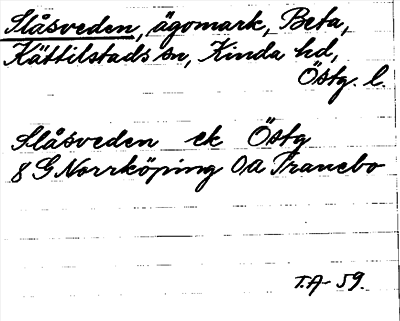 Slåsveden, ägomark, Beta,
Kättilstads sn, Kinda hd,
Östg. l.
Slåsveden ek Östg
8 G Norrköping 0a Tranebo
T.A- 59.